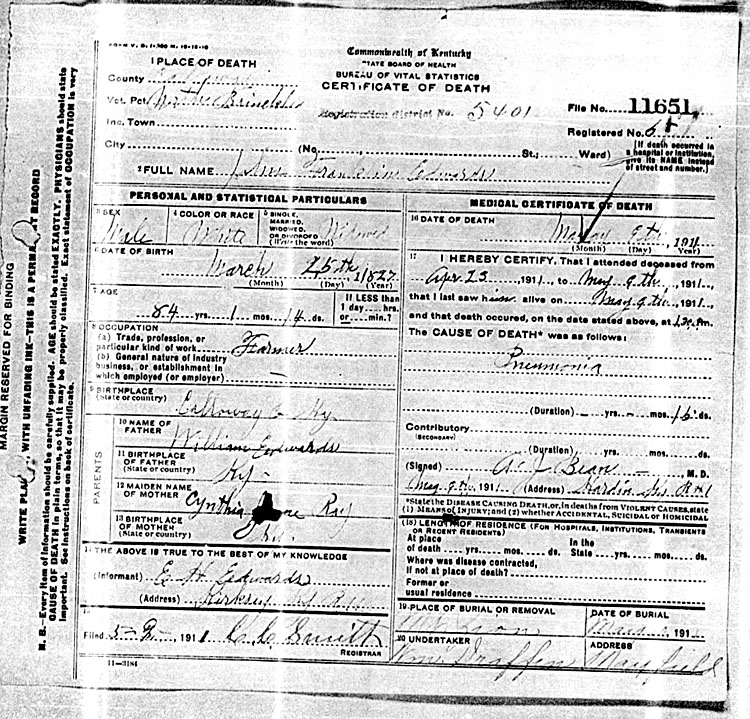 FORM V. S. 1-
1 PLACE OF DEATH
County
Vot. Pct
Inc. Town
City
Commonwealth of Kentucky
STATE BOARD OF HEALTH
BUREAU OF VITAL STATISTICS
CERTIFICATE OF DEATH
Registration district No. 5401
File No. 11651
Registered No.
(No. St.; Ward)
[If death occurred in a hospital or institution, give its NAME instead of street and number.]
2 FULL NAME Edwards
PERSONAL AND STATISTICAL PARTICULARS
3 SEX Male
4 COLOR OR RACE White
5 SINGLE, MARRIED, WIDOWED, OR DIVORCED (Write the word) Widowed
6 DATE OF BIRTH March 25th, 1827
(Month) (Day) (Year)
7 AGE 84 yrs. 1 mos. 14 ds.
If LESS than 1 day.... hrs. or.... min.?
8 OCCUPATION
(a) Trade, profession, or particular kind of work Farmer
(b) General nature of industry business, or establishment in which employed (or employer) —
9 BIRTHPLACE
(State or country) Calloway Co Ky
PARENTS
10 NAME OF FATHER William Edwards
11 BIRTHPLACE OF FATHER (State or country) Ky
12 MAIDEN NAME OF MOTHER Cynthia
13 BIRTHPLACE OF MOTHER (State or country)
14 THE ABOVE IS TRUE TO THE BEST OF MY KNOWLEDGE
(Informant) E. H. Edwards
(Address) Kirksey
15
Filed 1911 C C Smith
REGISTRAR
11—3184
MEDICAL CERTIFICATE OF DEATH
16 DATE OF DEATH May 9th, 1911
(Month) (Day) (Year)
17 I HEREBY CERTIFY, That I attended deceased from
Apr 23, 1911, to May 9th, 1911,
that I last saw him alive on May 9th, 1911,
and that death occured, on the date stated above, at m.
The CAUSE OF DEATH* was as follows:
Pneumonia
(Duration) yrs. mos. 15 ds.
Contributory
(SECONDARY)
(Duration) yrs. mos. ds.
(Signed) A. J. Bean M. D.
May 9th, 1911 (Address) Hardin Ky
*State the DISEASE CAUSING DEATH, or, in deaths from VIOLENT CAUSES, state
(1) MEANS of INJURY; and (2) whether ACCIDENTAL, SUICIDAL or HOMICIDAL
(18) LENGTH OF RESIDENCE (FOR HOSPITALS, INSTITUTIONS, TRANSIENTS OR RECENT RESIDENTS)
At place of death yrs. mos. ds. In the State yrs. mos. ds.
Where was disease contracted, if not at place of death?
Former or usual residence
19 PLACE OF BURIAL OR REMOVAL
DATE OF BURIAL 191
20 UNDERTAKER
ADDRESS Mayfield
MARGIN RESERVED FOR BINDING
WRITE PLAINLY WITH UNFADING INK—THIS IS A PERMANENT RECORD
N. B.—Every item of information should be carefully supplied. AGE should be stated EXACTLY. PHYSICIANS should state
CAUSE OF DEATH in plain terms, so that it may be properly classified. Exact statement of OCCUPATION is very
important. See instructions on back of certificate.